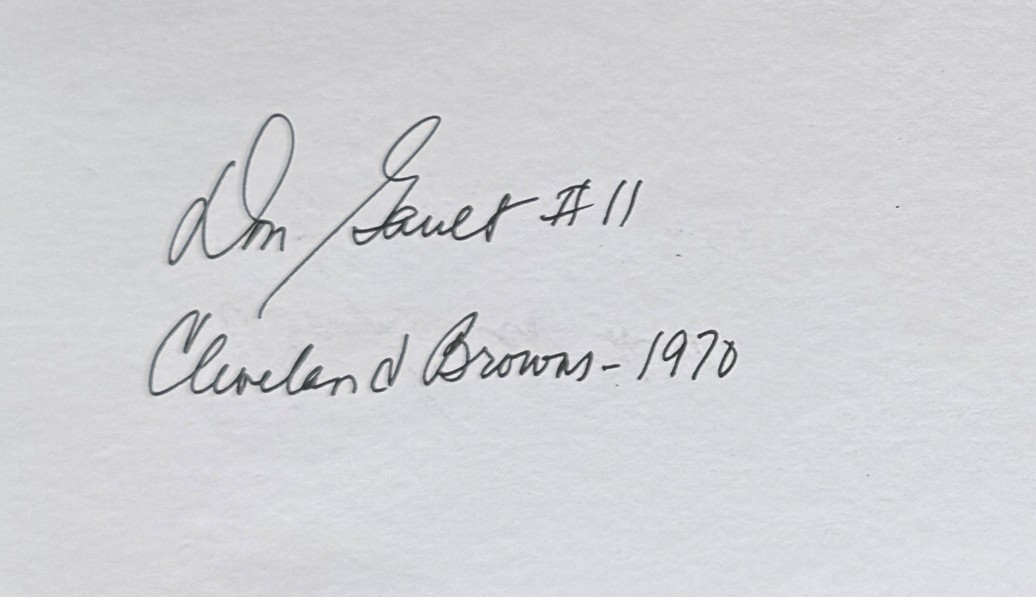 Don Gault #11
Cleveland Browns - 1970